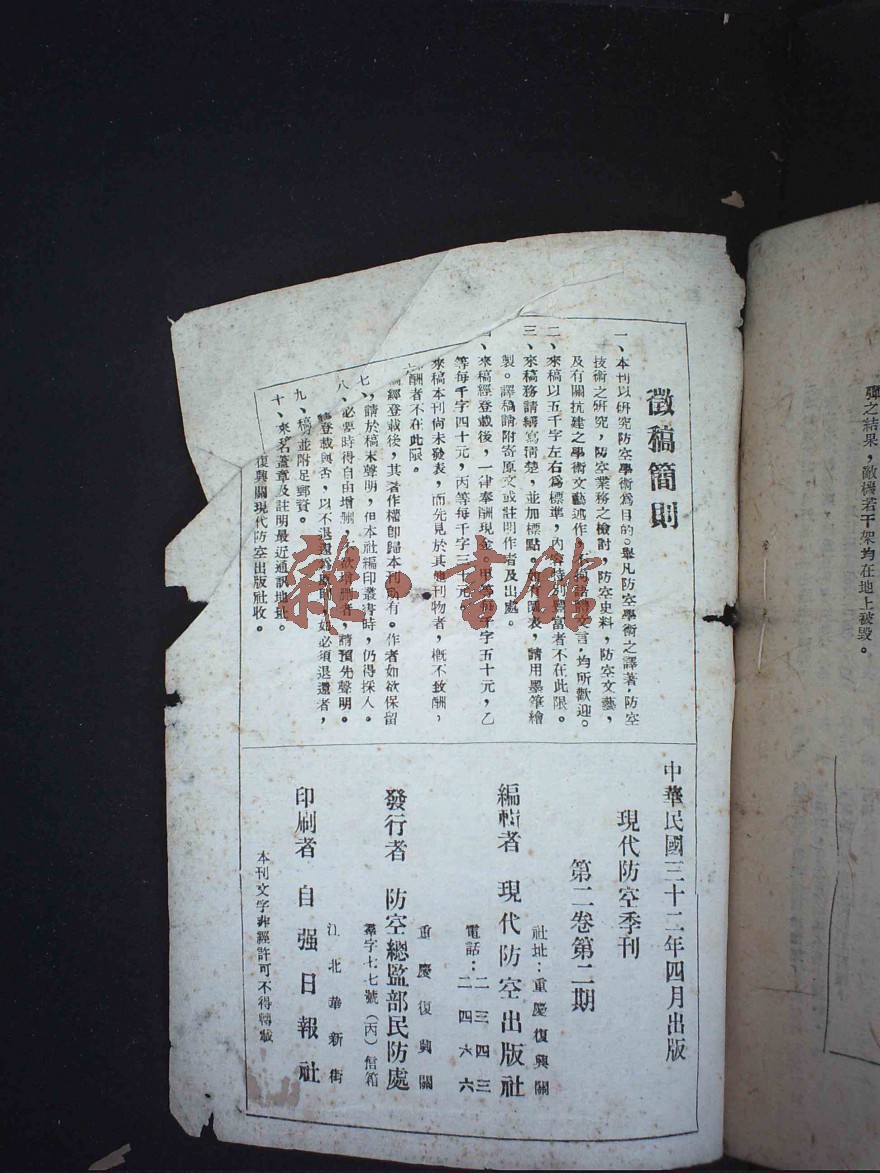 彈之結果，敵機若干架均在地上被毀。
徵稿簡則
一、本刊以研究防空學術爲目的。舉凡防空學術之譯著，防空
技術之研究，防空業務之檢討，防空史料，防空文藝，
及有關抗建之學術文藝述作，文言，均所歡迎。
二、來稿以五千字左右爲標準，內容特別豐富者不在此限。
三、來稿務請繕寫清楚，並加標點，圖表，請用墨筆繪
製。譯稿請附寄原文或註明作者及出處。
來稿經登載後，一律奉酬現金。甲等每千字五十元，乙
等每千字四十元，丙等每千字三十元。
來稿本刊尙未發表，而先見於其他刊物者，概不致酬，
酬者不在此限。
經登載後，其著作權卽歸本刊所有。作者如欲保留
七、請於稿末聲明，但本社編印叢書時，仍得採入。
八、必要時得自由增刪，不欲增刪者，請預先聲明。
登載與否，以不退還爲原則，如必須退還者，
九、稿並附足郵資。
十、來名蓋章及註明最近通訊地址。
復興關現代防空出版社收。
中華民國三十二年四月出版
現代防空季刊
第二卷第二期
編輯者 現代防空出版社
社址：重慶復興關
電話：二三四三
二四六六
發行者 防空總監部民防處
重慶復興關
羣字七七號（丙）信箱
印刷者 自强日報社
江北華新街
本刊文字非經許可不得轉載
雜·書館